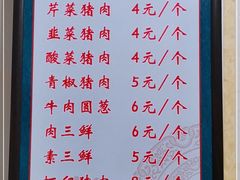 芹菜猪肉 4元/个
韭菜猪肉 4元/个
酸菜猪肉 4元/个
青椒猪肉 5元/个
牛肉圆葱 6元/个
肉三鲜 6元/个
素三鲜 5元/个